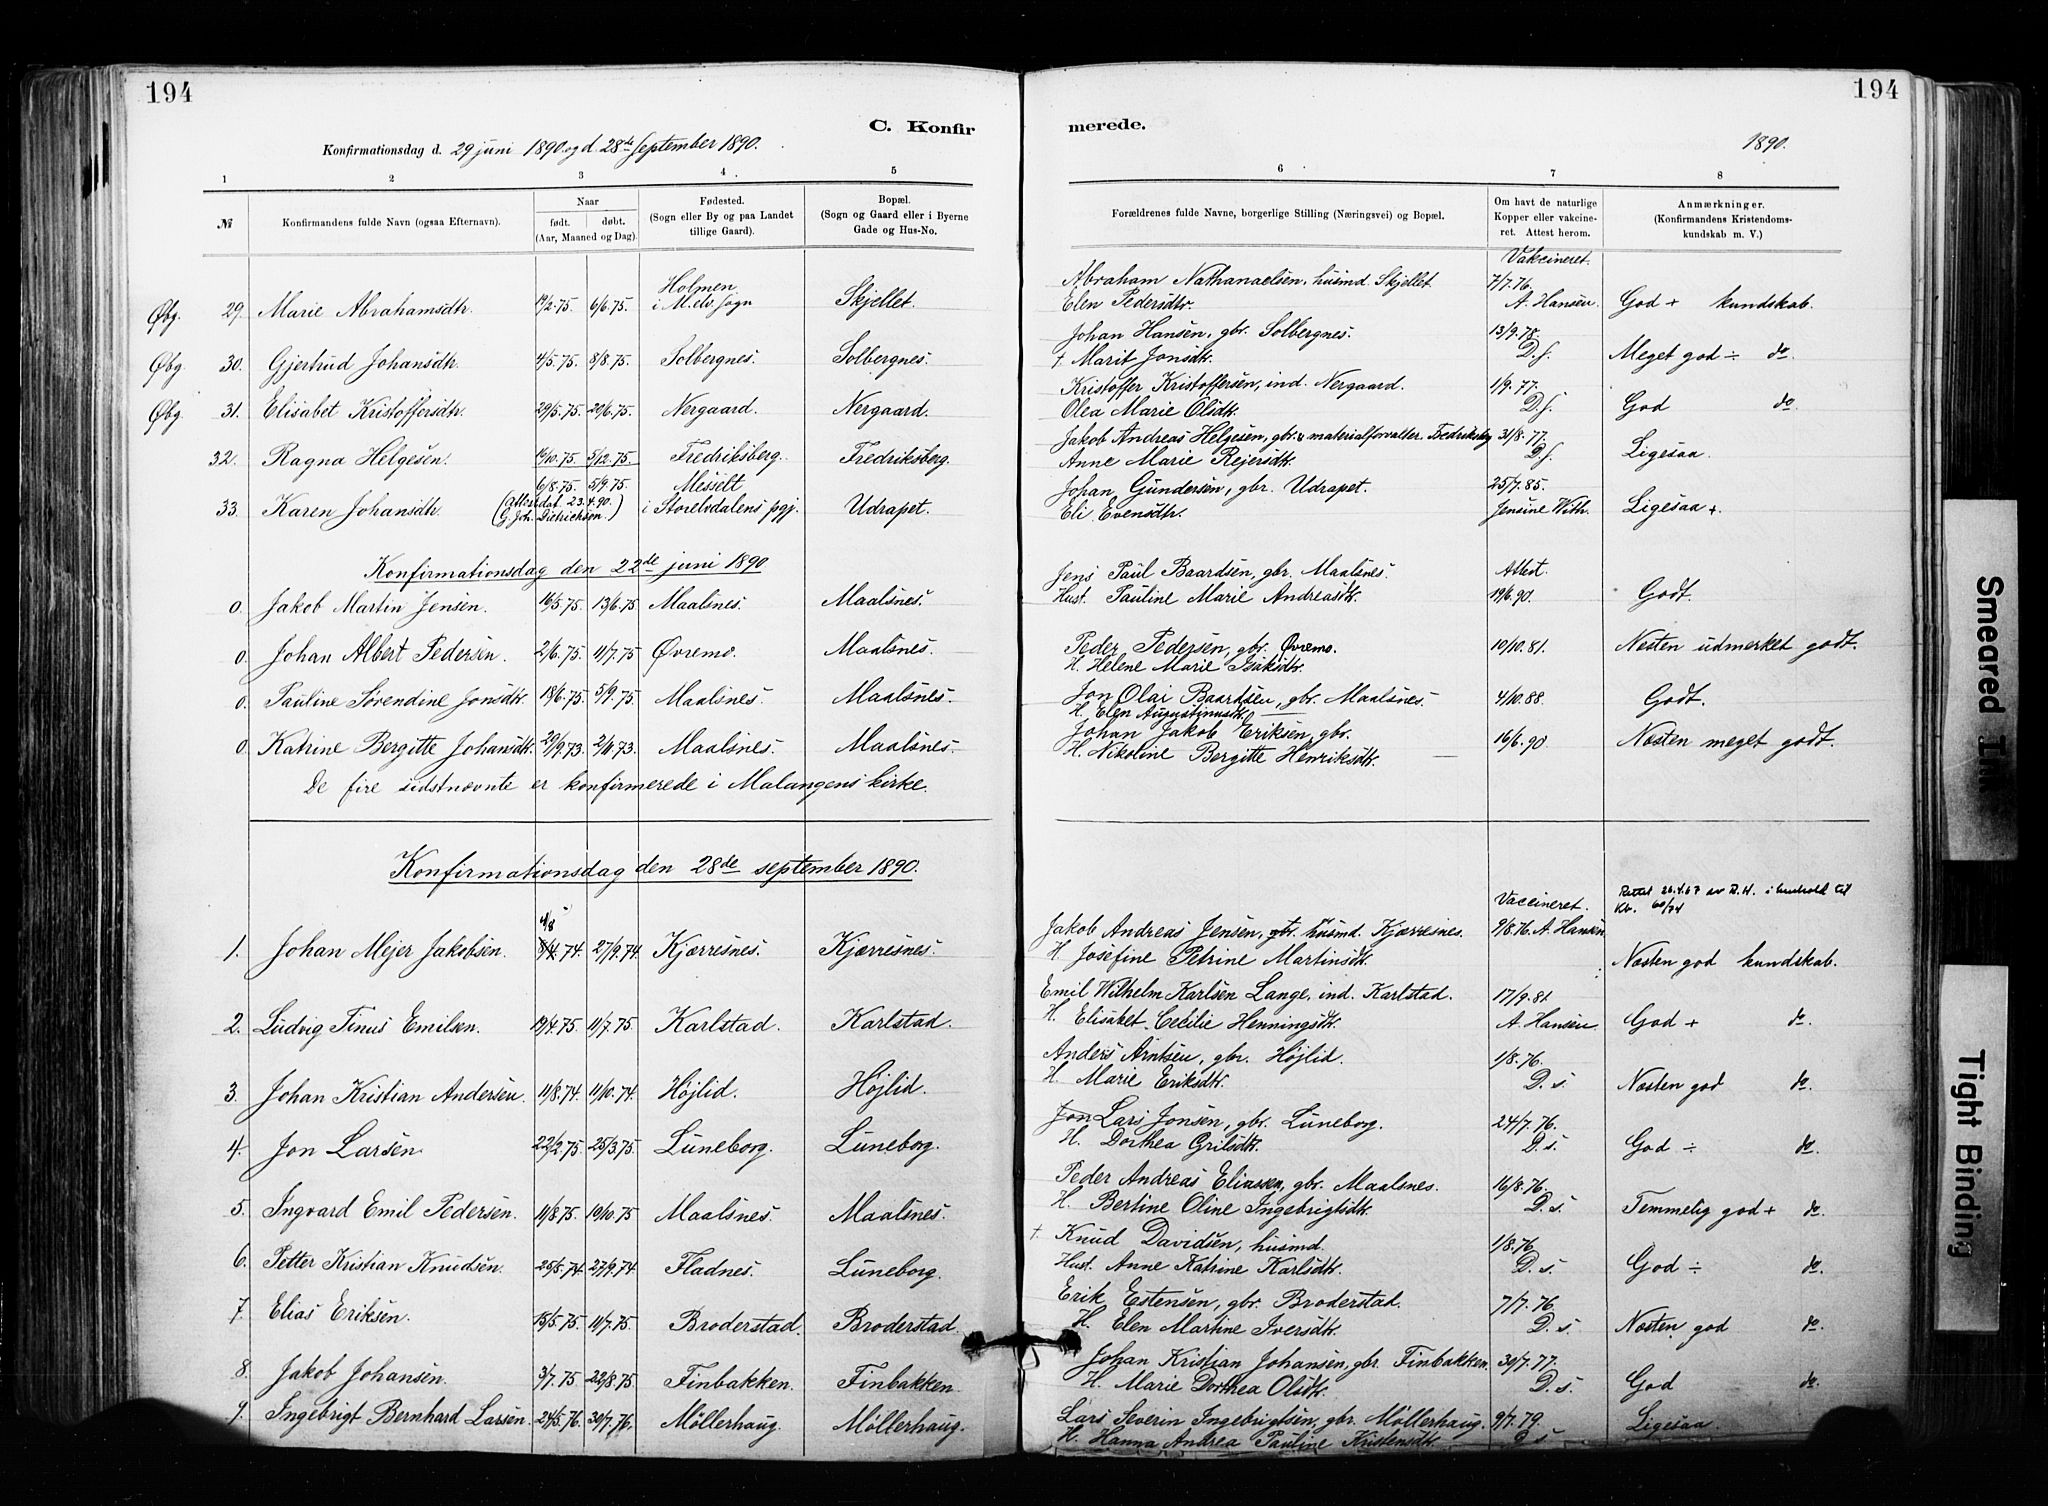 194
194
C. Konfir
merede.
Konfirmationsdag d. 29 juni 1890 og d. 28de September 1890.
1890.
1 2 3 4 5 6 7 8
№ Konfirmandens fulde Navn (ogsaa Efternavn). Naar født. døbt. (Aar, Maaned og Dag). Fødested. (Sogn eller By og paa Landet tillige Gaard). Bopæl. (Sogn og Gaard eller i Byerne Gade og Hus-No. Forældrenes fulde Navne, borgerlige Stilling (Næringsvei) og Bopæl. Om havt de naturlige Kopper eller vakcineret. Attest herom. Anmærkninger. (Konfirmandens Kristendomskundskab m. V.)
Vakcineret.
Holmen Abraham Nathanaelsen, husmd. Skjellet 7/7.76.
Øbg. 29. Marie Abrahamsdtr. 19/2.75. 6/6.75. i M.elv. sogn Skjellet. Elen Pedersdtr. A. Hansen. God + kundskab.
Johan Hansen, gbr. Solbergnes. 13/9.78
Øbg. 30. Gjertrud Johansdtr. 4/5.75. 8/8.75. Solbergnes. Solbergnes. † Marit Jonsdtr. D.s. Meget god ÷ do.
Kristoffer Kristoffersen, ind. Nergaard. 1/9.77.
Øbg 31. Elisabet Kristoffersdtr. 29/5.75. 20/6.75. Nergaard. Nergaard. Olea Marie Olsdtr. D.s. God do.
Jakob Andreas Helgesen, gbr. & materialforvalter. Fredriksberg 31/8.77.
32. Ragna Helgesen. 19/10.75. 5/12.75. Fredriksberg. Fredriksberg. Anne Marie Rejersdtr. D.s. Ligesaa
6/8.75. 5/9.75. Messelt Johan Gundersen, gbr. Udrapet. 25/7.85.
33. Karen Johansdtr. (Attest dat. 23.4.90. G. Joh. Dietrichson.) i Storelvdalens pgj. Udrapet. Eli Evensdtr. Jensine With. Ligesaa +.
Konfirmationsdag den 22de juni 1890
Jens Paul Baardsen, gbr. Maalsnes. Attest.
0. Jakob Martin Jensen. 16/5.75. 13/6.75 Maalsnes. Maalsnes. Hust. Pauline Marie Andreasdtr. 19/6.90. Godt.
0. Johan Albert Pedersen. 2/6.75. 11/7.75 Øvremo. Maalsnes. Peder Pedersen, gbr. Øvremo. 10/10.81. Nesten udmerket godt.
H. Helene Marie Isaksdtr.
0. Pauline Sørendine Jonsdtr. 18/6.75. 5/9.75. Maalsnes. Maalsnes. Jon Olai Baardsen, gbr. Maalsnes 4/10.88. Godt.
H. Elen Augustinusdtr.
0. Katrine Bergitte Johansdtr. 29/9.73. 2/11.73. Maalsnes. Maalsnes. Johan Jakob Eriksen, gbr. 16/6.90. Nesten meget godt.
H. Nikoline Bergitte Henriksdtr.
De fire sidstnævnte er konfirmerede i Malangens kirke.
Konfirmationsdag den 28de september 1890.
Vaccineret. Rettet 26.4.67 av R.H. i henhold til kb. 60/74
4/8
Jakob Andreas Jensen, gbr. husmd. Kjærresnes. 9/8.76. A. Hansen
1. Johan Mejer Jakobsen. 8/4.74. 27/9.74. Kjærresnes. Kjærresnes. H. Josefine Petrine Martinsdtr. Nesten god kundskab.
Emil Wilhelm Karlsen Lange, ind. Karlstad. 17/9.81
2. Ludvig Tinus Emilsen. 19/4.75. 11/7.75. Karlstad. Karlstad. H. Elisabet Cecilie Henningsdtr. A. Hansen. God + do.
Anders Arntsen, gbr. Højlid. 1/8.76.
3. Johan Kristian Andersen. 11/8.74. 11/10.74. Højlid. Højlid. H. Marie Eriksdtr. D.s. Nesten god do.
Jon Lars Jonsen, gbr. Luneborg. 24/7.76.
4. Jon Larsen. 22/2.75. 25/3.75. Luneborg. Luneborg. H. Dorthea Grilsdtr. D.s. God ÷ do.
Peder Andreas Eliassen, gbr. Maalsnes. 16/8.76.
5. Ingvard Emil Pedersen. 11/8.75. 19/10.75 Maalsnes. Maalsnes. H. Bertine Oline Ingebrigtsdtr. D.s. Temmelig god + do.
† Knud Davidsen, husmd. 1/8.76
6. Petter Kristian Knudsen. 25/5.74. 27/9.74. Fladnes. Luneborg. Hust. Anne Katrine Karlsdtr. D.s. God ÷ do.
Erik Estensen, gbr. Broderstad. 7/7.76
7. Elias Eriksen. 15/5.75. 11/7.75. Broderstad. Broderstad. H. Elen Martine Iversdtr. D.s. Nesten god do.
Johan Kristian Johansen, gbr. Finbakken. 30/7.77.
8. Jakob Johansen. 3/7.75. 22/8.75. Finbakken. Finbakken. H. Marie Dorthea Olsdtr. D.s. God do.
9. Ingebrigt Bernhard Larsen. 24/5.76. 30/7.76. Møllerhaug. Møllerhaug. Lars Severin Ingebrigtsen, gbr. Møllerhaug. 9/7.79. Ligesaa.
H. Hanna Andrea Pauline Kristensdtr. D s
Smeared Ink
Tight Binding